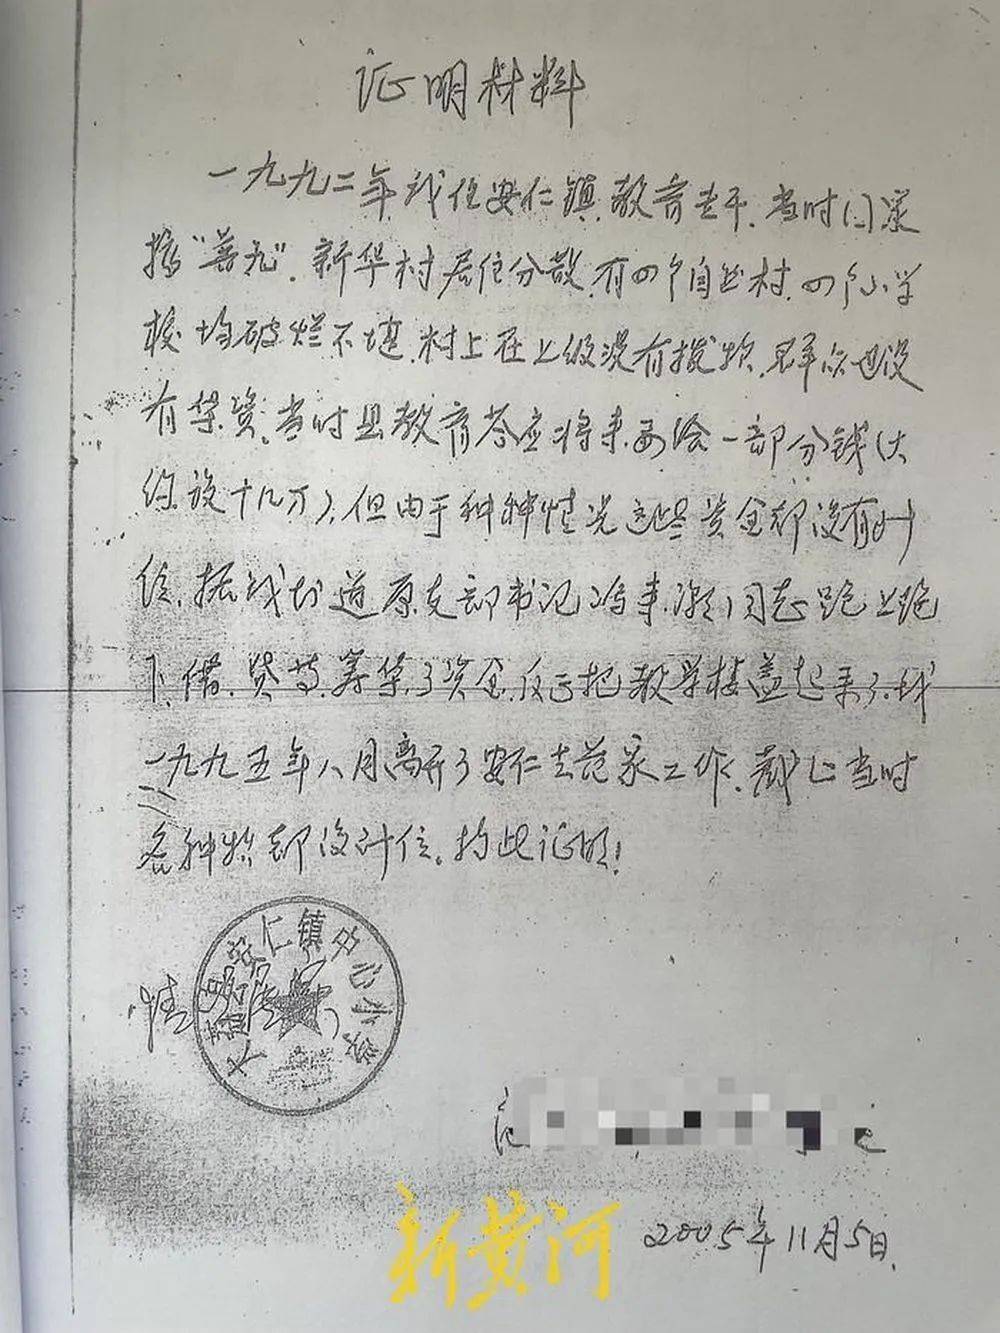 证明材料
一九九二年我任安仁镇教育专干,当时门采
接"普九",新华村居住分散,有四个自然村,四个小学
校均破烂不堪,村上在上级没有拨款,群众也没
有集资,当时县教育答应将来要给一部分钱(大
约说十几万),但由于种种情况这些资金却没有到
位,据我知道原支部书记冯来潮同志跑上跑
下,借、贷等筹集了资金,反正把教学楼盖起来了,我
一九九五年八月离开了安仁去范家工作,截止当时
各种款都没到位。特此证明!
安仁镇中心小学
情况属实
证
2005年11月5日
新黄河